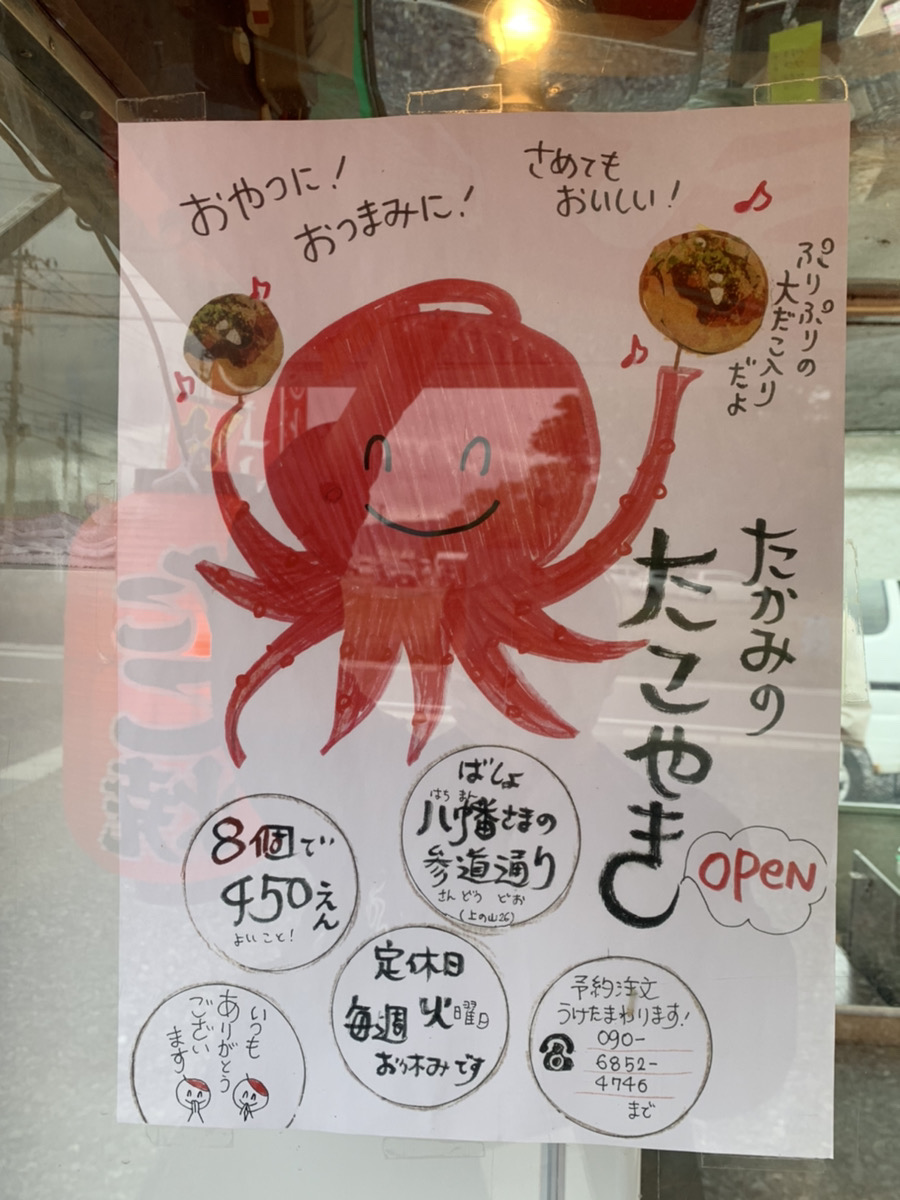 おやつに!
おつまみに!
さめても
おいしい!
ぷりぷりの
大だこ入り
だよ
たかみの
たこやき
OPEN
ばしょ
はちまん
八幡さまの
参道通り
さんどうどお
(上の山26)
8個で
450えん
よいこと!
定休日
毎週火曜日
お休みです
予約注文
うけたまわります!
090-
6852-
4746
まで
いつも
ありがとう
ござい
ます